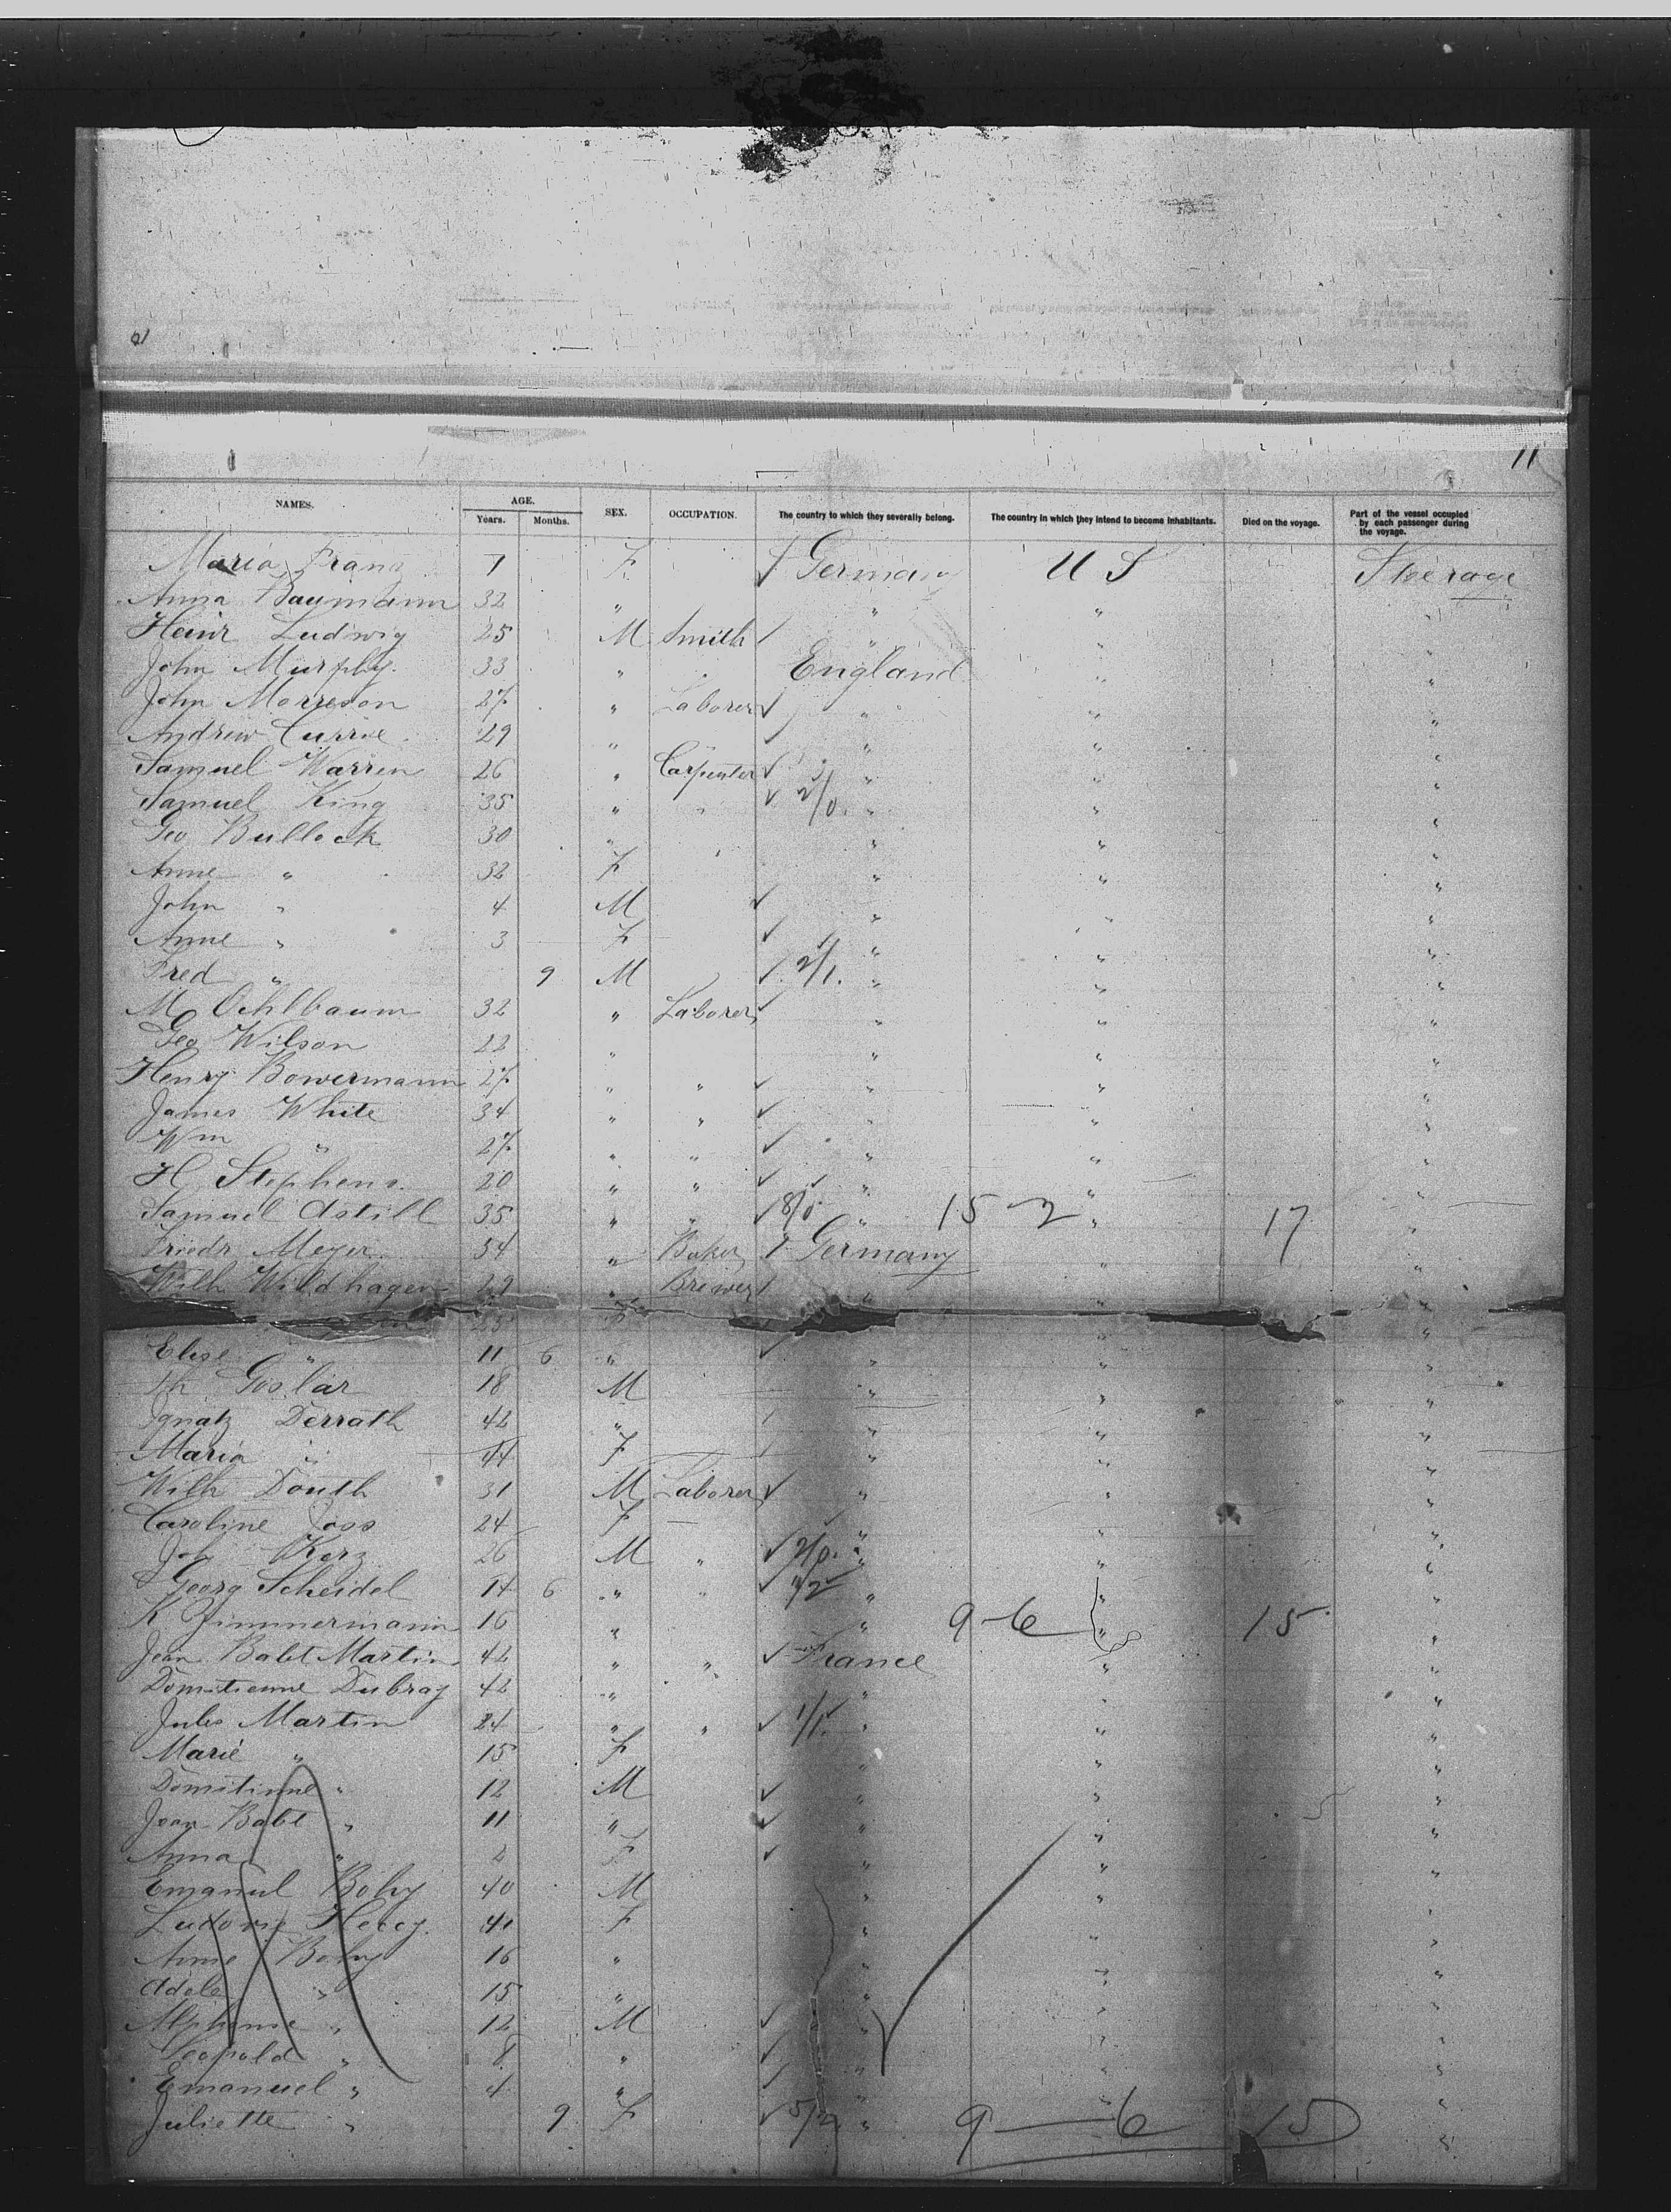 11
NAMES. AGE. SEX. OCCUPATION. The country to which they severally belong. The country in which they intend to become inhabitants. Died on the voyage. Part of the vessel occupied by each passenger during the voyage.
Years. Months.
Maria Franz 1 F. Germany U S Steerage
Anna Baumann 32 " " " "
Heinr Ludwig 25 M Smith " " "
John Murphy. 33 " England " "
John Morrison 27 " Laborer " " "
Andrew Currie 29 " " " " "
Samuel Warren 26 " Carpenter " " "
Samuel King 35 " " 2/0. " " "
Geo Bullock 30 " " " "
Anne " 32 F " " "
John " 4 M " " "
Anne " 3 F " " "
Fred " 9 M 2/1. " " "
M Oehlbaum 32 " Laborer " " "
Geo Wilson 22 " " " "
Henry Bowermann 27 " " " " "
James White 34 " " " " "
Wm " 27 " " " " "
H Stephens. 20 " " " " "
Samuel Astill 35 " " 8/0 " 15 2 " 17 "
Friedr Meyer 34 " Baker Germany " "
Wilh Wildhagen 29 " Brewer " " "
25 F " "
Elise " 11 6 " " " "
Th Goslar 18 M " " "
Ignatz Derrath 42 " " " "
Maria " 44 F " " "
Wilh Douth 31 M Laborer " " "
Caroline 24 F " " "
Joh Kerz 26 M " 2/0. " " "
Georg Scheidel 14 6 " " 1/2 " " "
K Zimmermann 16 " " 9-6 " 15 "
Jean Babt Martin 42 " " France " "
Domitienne Dubray 42 " " " "
Jules Martin 24 " " 1/1. " " "
Marie " 15 F " " "
Domitienne " 12 M " " "
Jean Babt " 11 " " " "
Anna " 2 F " " "
Emanuel Boby 40 M " " "
Ludovie 41 F " " "
Anne Boby 16 " " " "
Adole " 15 " " " "
Alphonse " 12 M " " "
Leopold " 8 " " " "
Emanuel " 4 " " " "
Juliette " 9 F 5/2 " 9-6 15 "